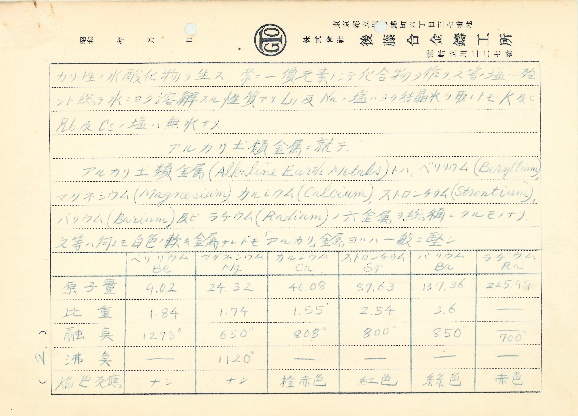 昭和 年 月 日
株式會社 後藤合金鑄工所
カリ性ノ水酸化物ヲ生ズ 常ニ一價元素ニシテ化合物ヲ作リ又常ノ塩ハ殆
ント総テ水ニヨク溶解スル性質ナリ Li及Naノ塩ハ ヨク結晶水ヲ取レドモ K及ビ
Rb及Csノ塩ハ無水ナリ
アルカリ土類金属ニ就テ
アルカリ土類金属(Alkaline Earth Metals)トハ ベリリウム(Beryllium),
マグネシウム(Magnesium) カルシウム(Calcium), ストロンチウム(Strontium),
バリウム(Barium)及ビ ラヂウム(Radium)ノ六金属ヲ総稱シタルモノナリ
之等ハ何レモ白色ノ軟キ金属ナレドモ アルカリ金属ヨリハ一般ニ堅シ
ベリリウム Be マグネシウム Mg カルシウム Ca ストロンチウム Sr バリウム Ba ラヂウム Ra
原子量 9.02 24.32 40.08 87.63 137.36
比重 1.84 1.74 1.55 2.54 3.6 —
融点 650° 808° 800° 850° 700°
沸点 — 1120° — — — —
焔色反應 ナシ ナシ 橙赤色 紅色 緑色 赤色
(2)